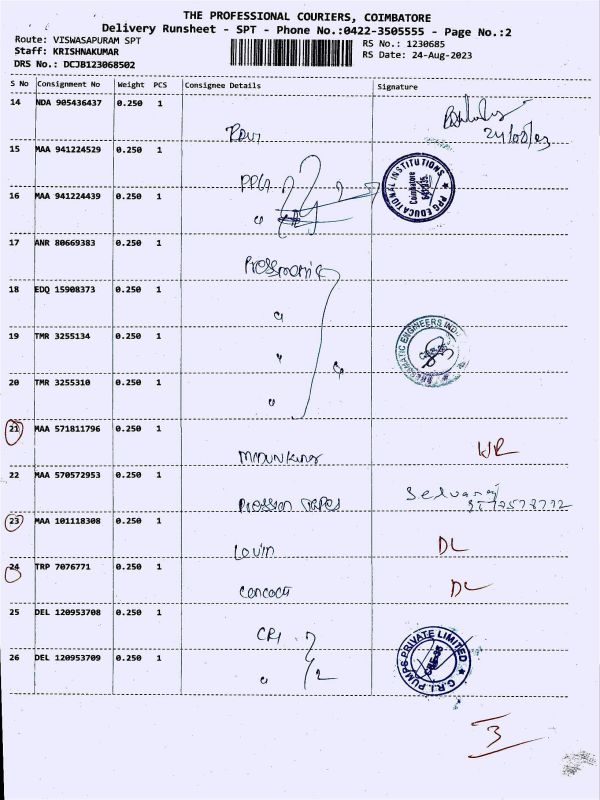 THE PROFESSIONAL COURIERS, COIMBATORE
Delivery Runsheet - SPT - Phone No.:0422-3505555 - Page No.:2
Route: VISWASAPURAM SPT
Staff: KRISHNAKUMAR
DRS No.: DCJB123068502
RS No.: 1230685
RS Date: 24-Aug-2023
S No Consignment No Weight PCS Consignee Details Signature
14 NDA 905436437 0.250 1
Ravi
24/08/23
15 MAA 941224529 0.250 1
PPG 2
PPG EDUCATIONAL INSTITUTIONS
Coimbatore
16 MAA 941224439 0.250 1
17 ANR 80669383 0.250 1
Pressmatic
18 EDQ 15908373 0.250 1
19 TMR 3255134 0.250 1
PRESSMATIC ENGINEERS
20 TMR 3255310 0.250 1
21 MAA 571811796 0.250 1
WR
22 MAA 570572953 0.250 1
Selvaraj
23 MAA 101118308 0.250 1
Lovin DL
24 TRP 7076771 0.250 1
DL
25 DEL 120953708 0.250 1
CRI
C.R.I. PUMPS PRIVATE LIMITED
CBE-35
26 DEL 120953709 0.250 1
2
3